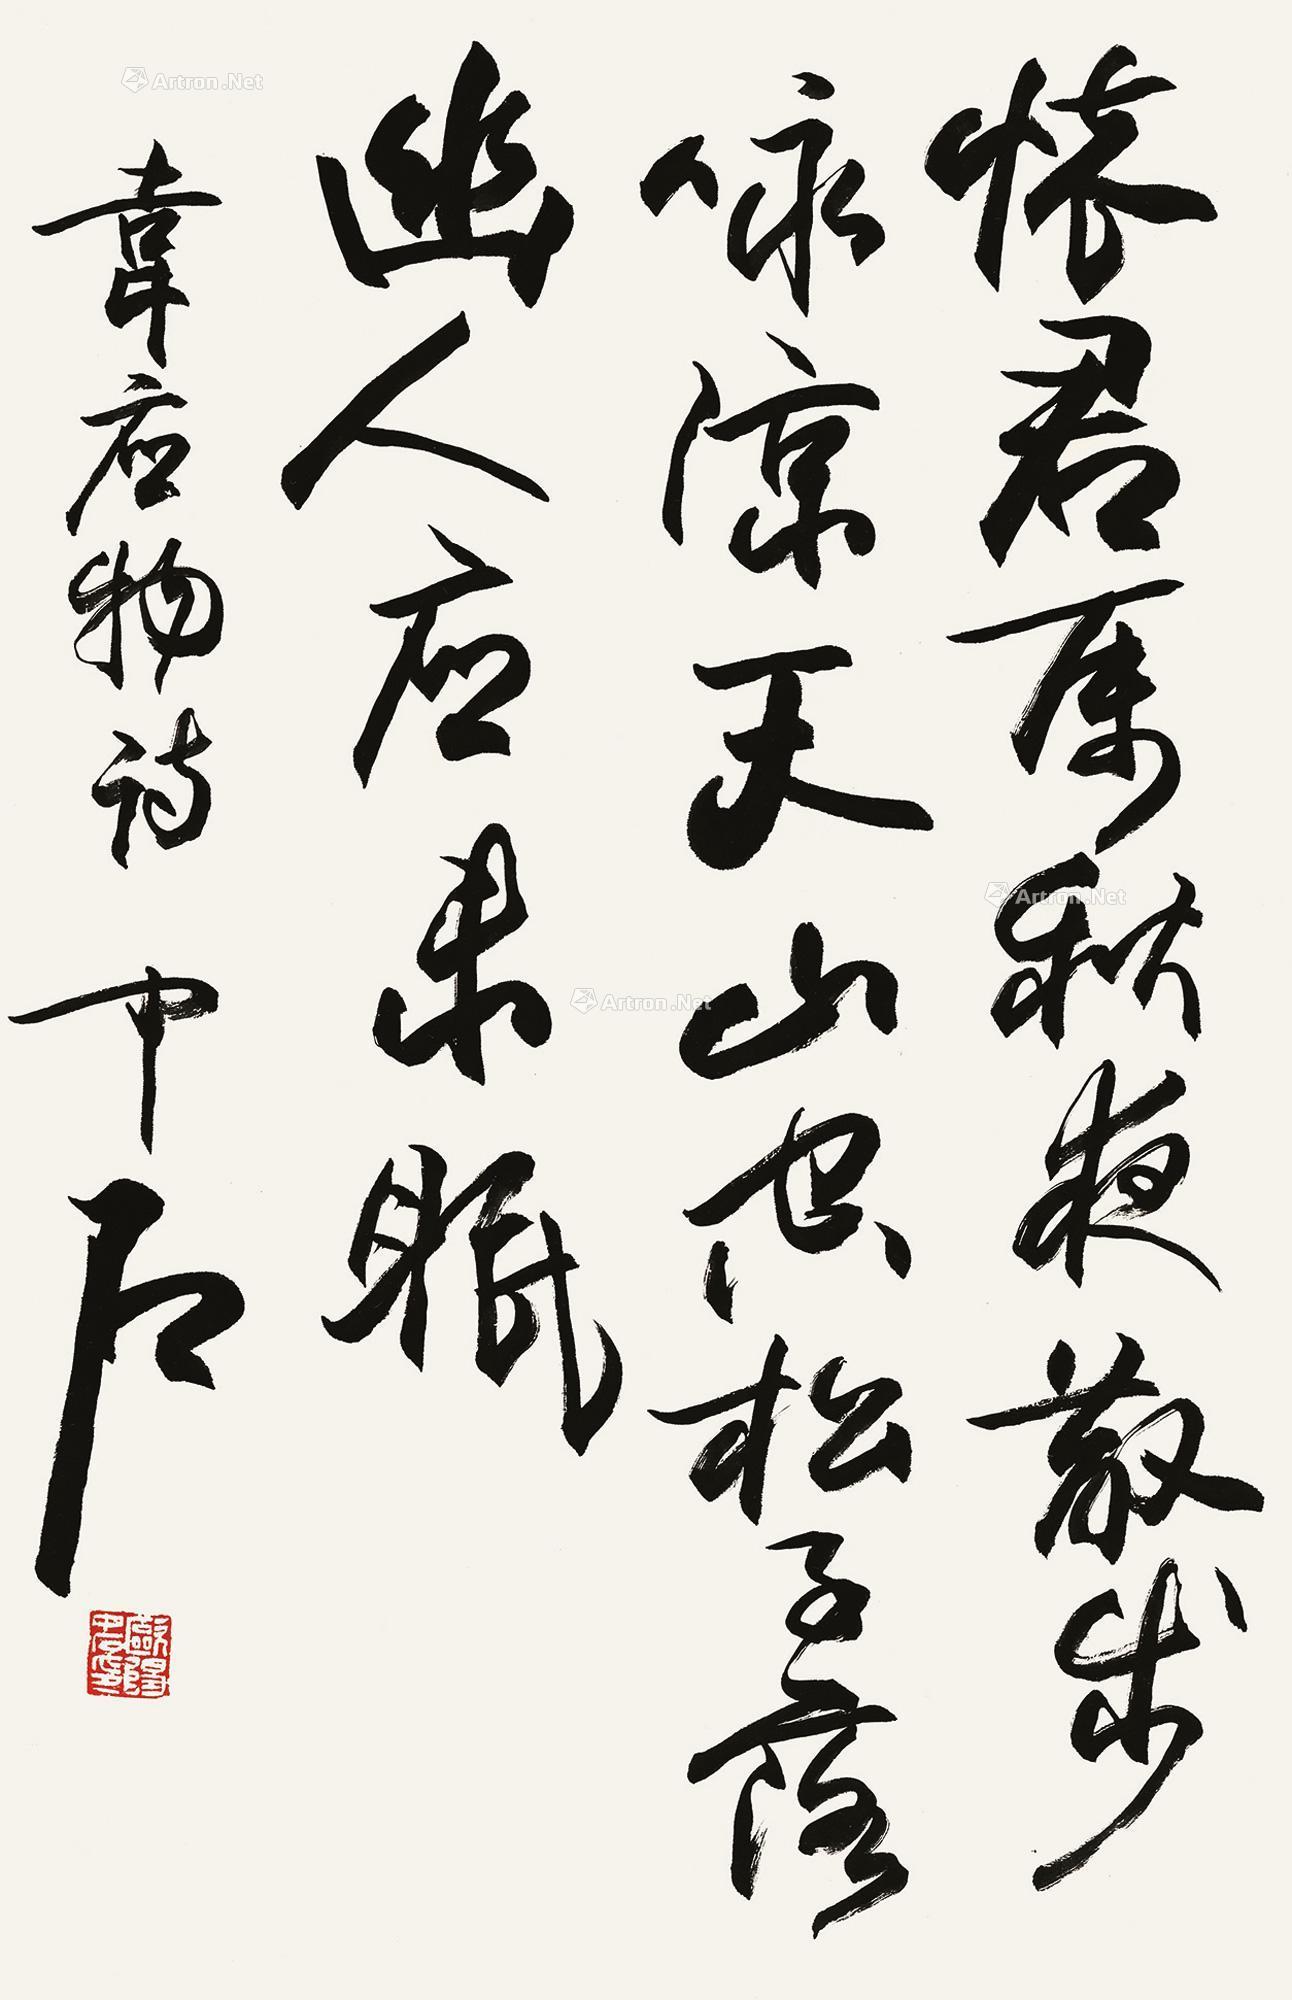 怀君属秋夜散步
咏凉天山空松子落
幽人应未眠
韦应物诗 中石
欧阳中石印
Artron.Net
Artron.Net
Artron.Net